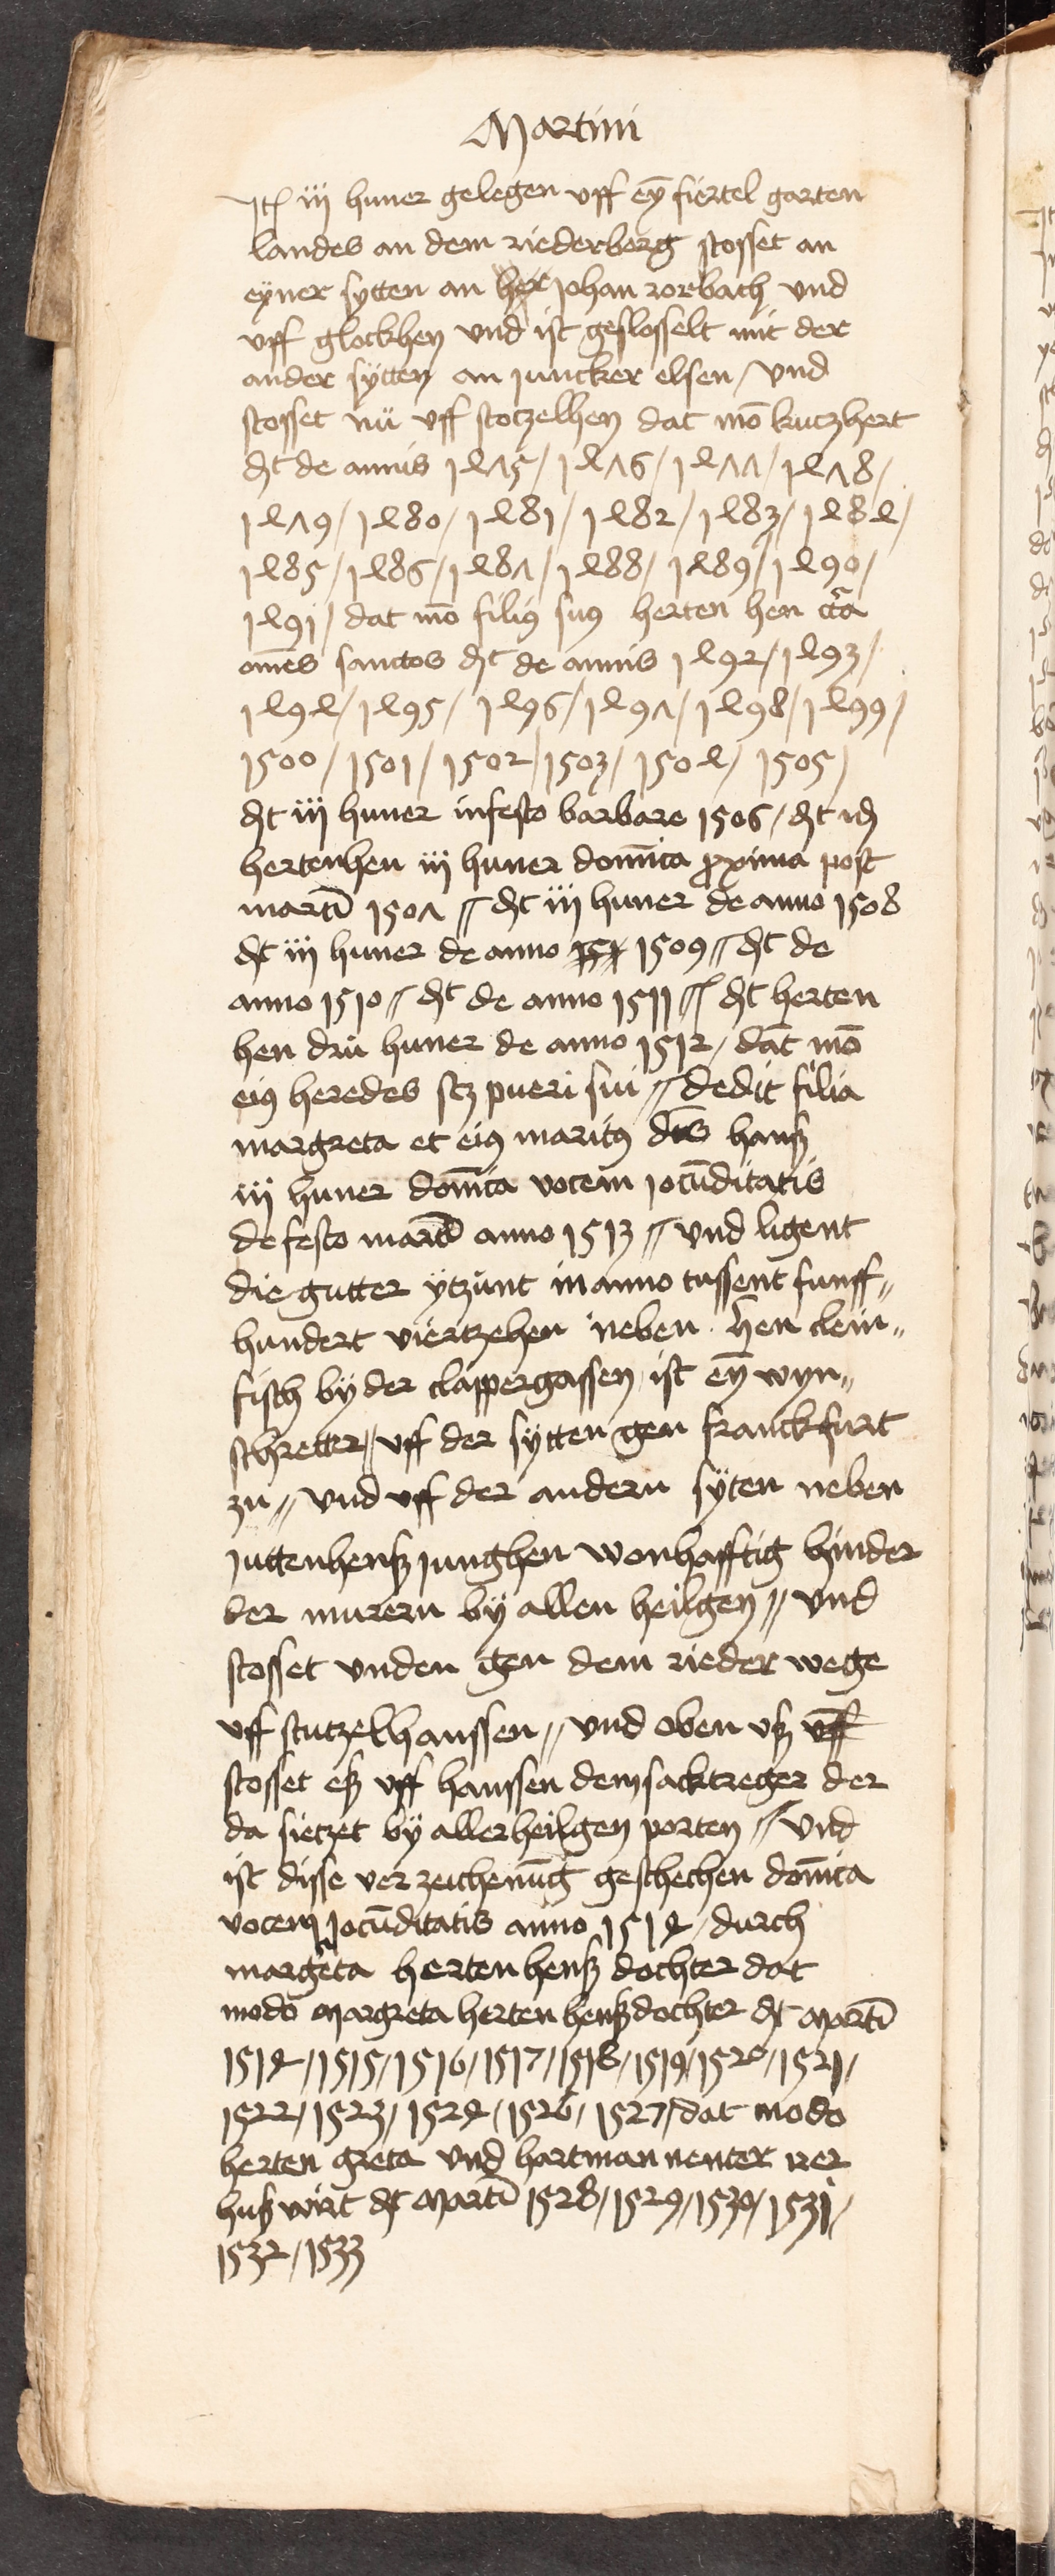 Martini
Itē iij huner gelegen vff eȳ fiertel garten
landes an dem riederberg stosset an
eyner sytten an her Johan rorbach und
vff glockhen vnd ist geslosselt mit der
ander sytten an juncker elsen / vnd
stosset nü vff stotzelhen dat mō kutzhert
dt de annis 1475 / 1476 / 1477 / 1478 /
1479 / 1480 / 1481 / 1482 / 1483 / 1484 /
1485 / 1486 / 1487 / 1488 / 1489 / 1490 /
1491 / dat mō filiꝰ suꝰ herten hen cc̄a
om̄es sanctos dt de annis 1492 / 1493 /
1494 / 1495 / 1496 / 1497 / 1498 / 1499 /
1500 / 1501 / 1502 / 1503 / 1504 / 1505 /
dt iij huner in festo barbare 1506 / dt id
hertenhen iij huner domīca ꝓxima post
martī 1507 // dt iij huner de anno 1508
dt iij huner de anno 1509 // dt de
anno 1510 // dt de anno 1511 // dt herten
hen drü huner de anno 1512 / dāt mō
eiꝰ heredes scz pueri sui // dedit filia
margreta et eiꝰ maritꝰ dc̄s hanß
iij huner domīca vocem jocūditatis
de festo martī anno 1513 // vnd ligent
die gutter ytzunt in anno tussent funff„
hundert viertzehen neben hen clein„
fisch by der clappergassen / ist eȳ wyn„
schretter // vff der sytten gen franckfurt
zu // vnd vff der andern syten neben
juttenhenß junghen wonhafftig hinder
der murern by allen heilgen // vnd
stosset vnden gen dem rieder wege
vff stutzelhanssen // vnd oben vß vff
stosset eß vff hanssen dem sacktreger der
da sietzet by allerheilgen porten // vnd
ist disse verzeichenūg geschechen domīca
vocem jocūditatis anno 1514 / durch
margreta hertenhenß dochter dat
modo Margreta herten henß dochter dt Martī
1514 / 1515 / 1516 / 1517 / 1518 / 1519 / 1520 / 1521 /
1522 / 1523 / 1524 / 1526 / 1527 / dat modo
herten greta vnd hartman nenter irer
huß wirt dt Martī 1528 / 1529 / 1530 / 1531 /
1532 / 1533